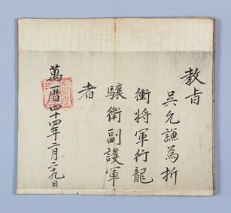 教旨
吳允謙為折
衝將軍行龍
驤衛副護軍
者
萬曆四十四年二月二十九日